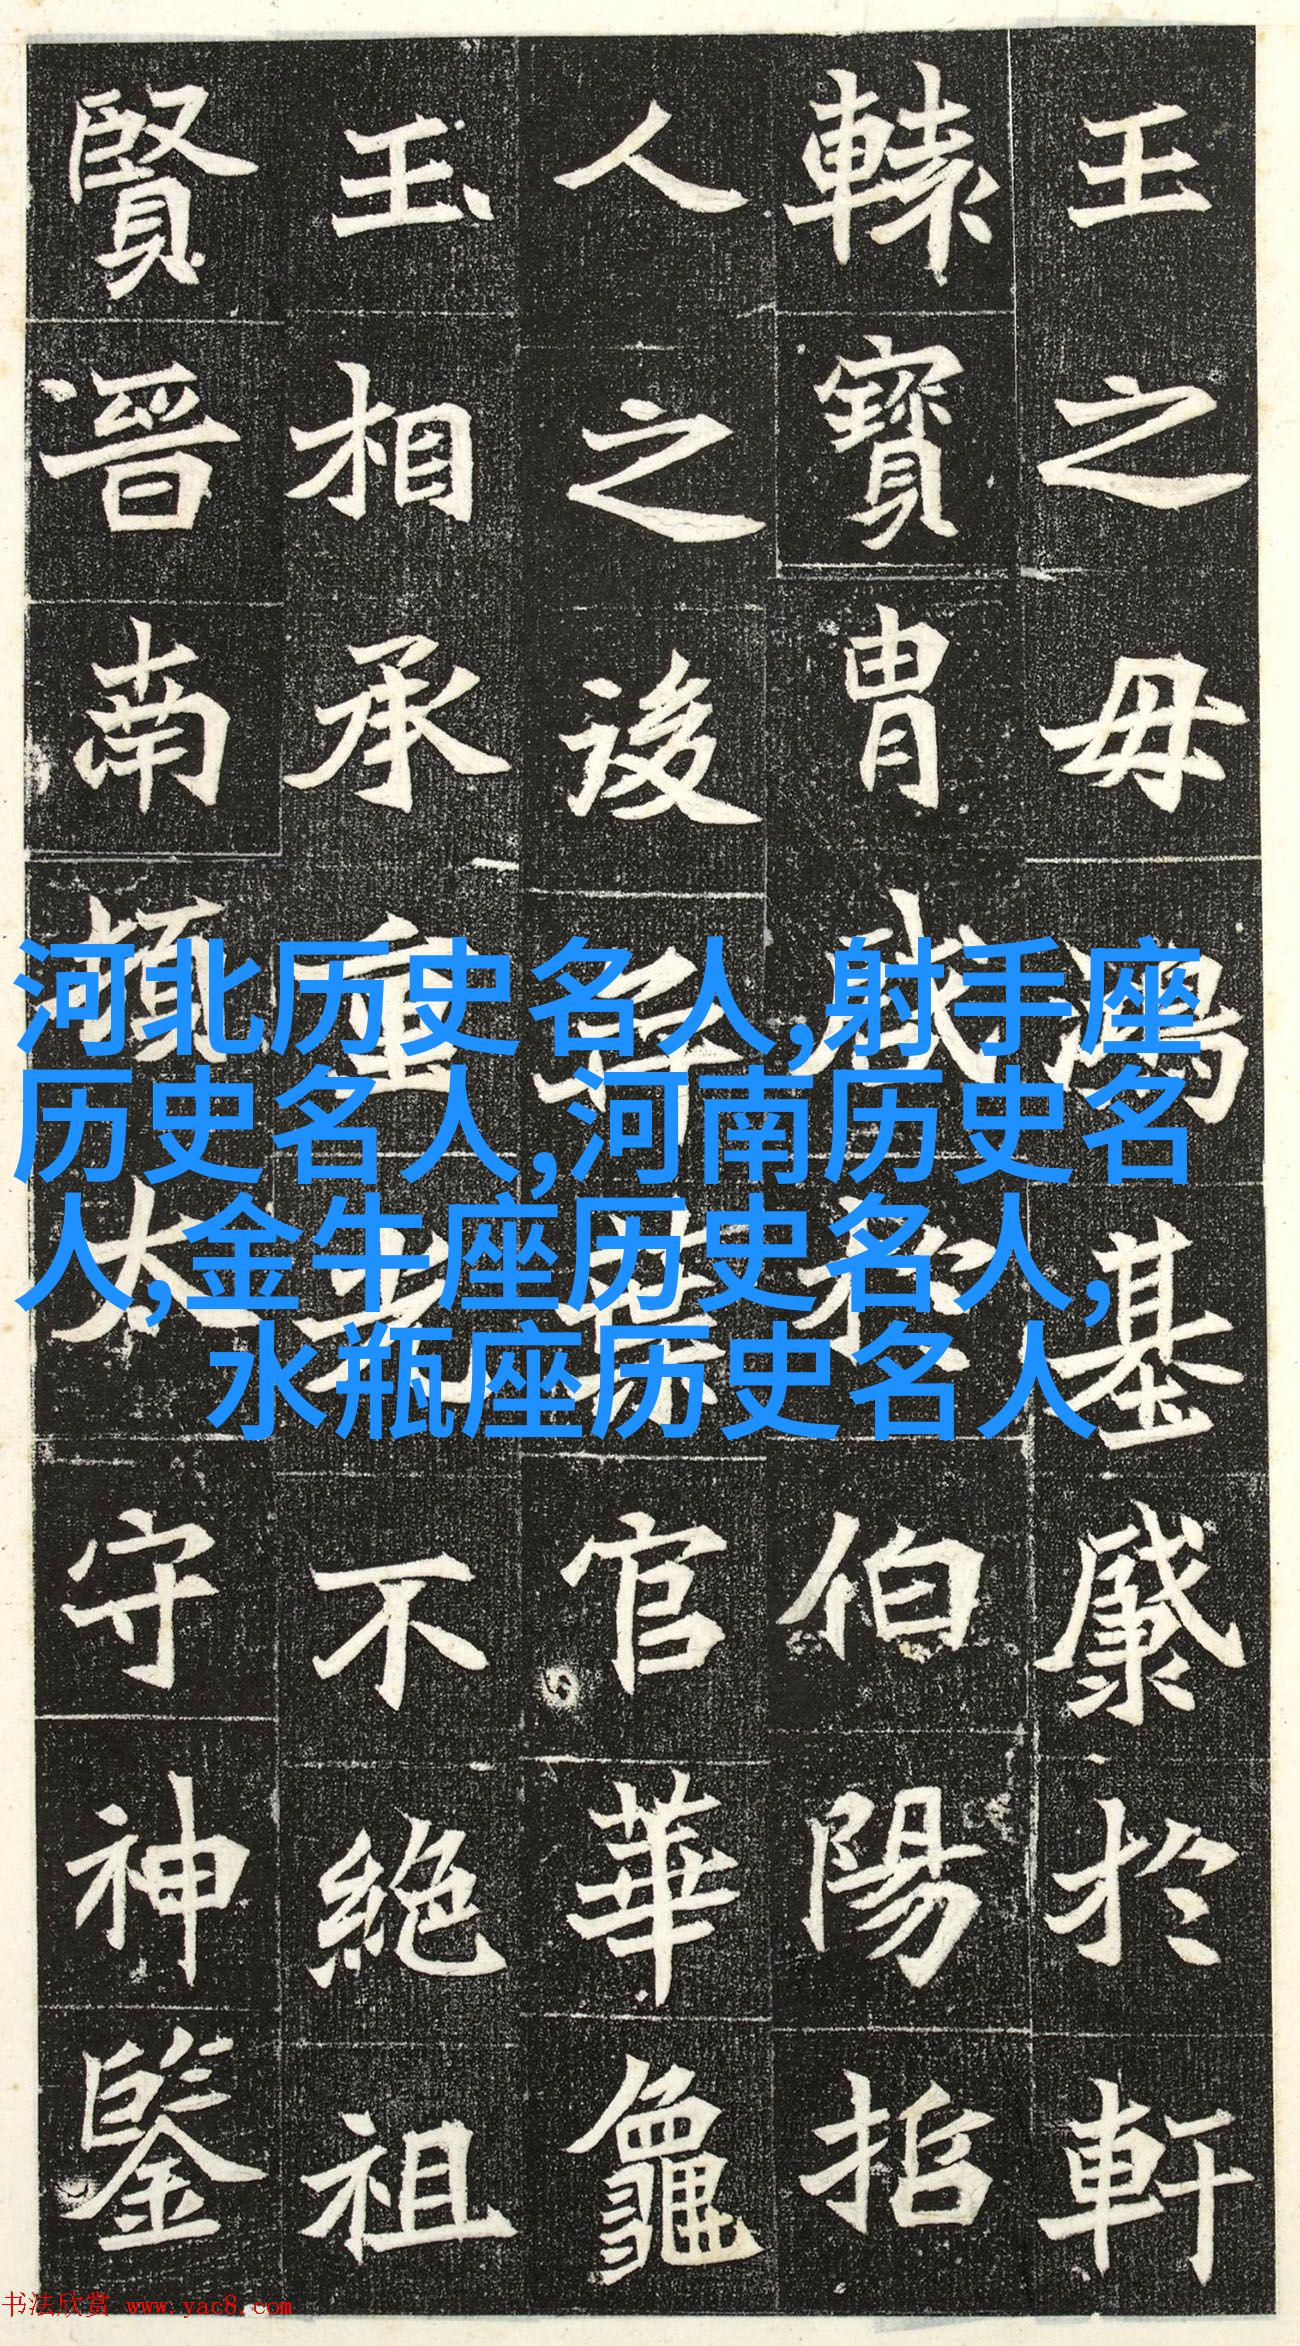 王之母鴻基於軒
轅寶胄伯陽指
人之後葉官華龜
玉相承重光不絕祖
賢晉南頓太守神鑒
河北历史名人,射手座
历史名人,河南历史名
人,金牛座历史名人,
水瓶座历史名人
书法欣赏 www.yac8.com